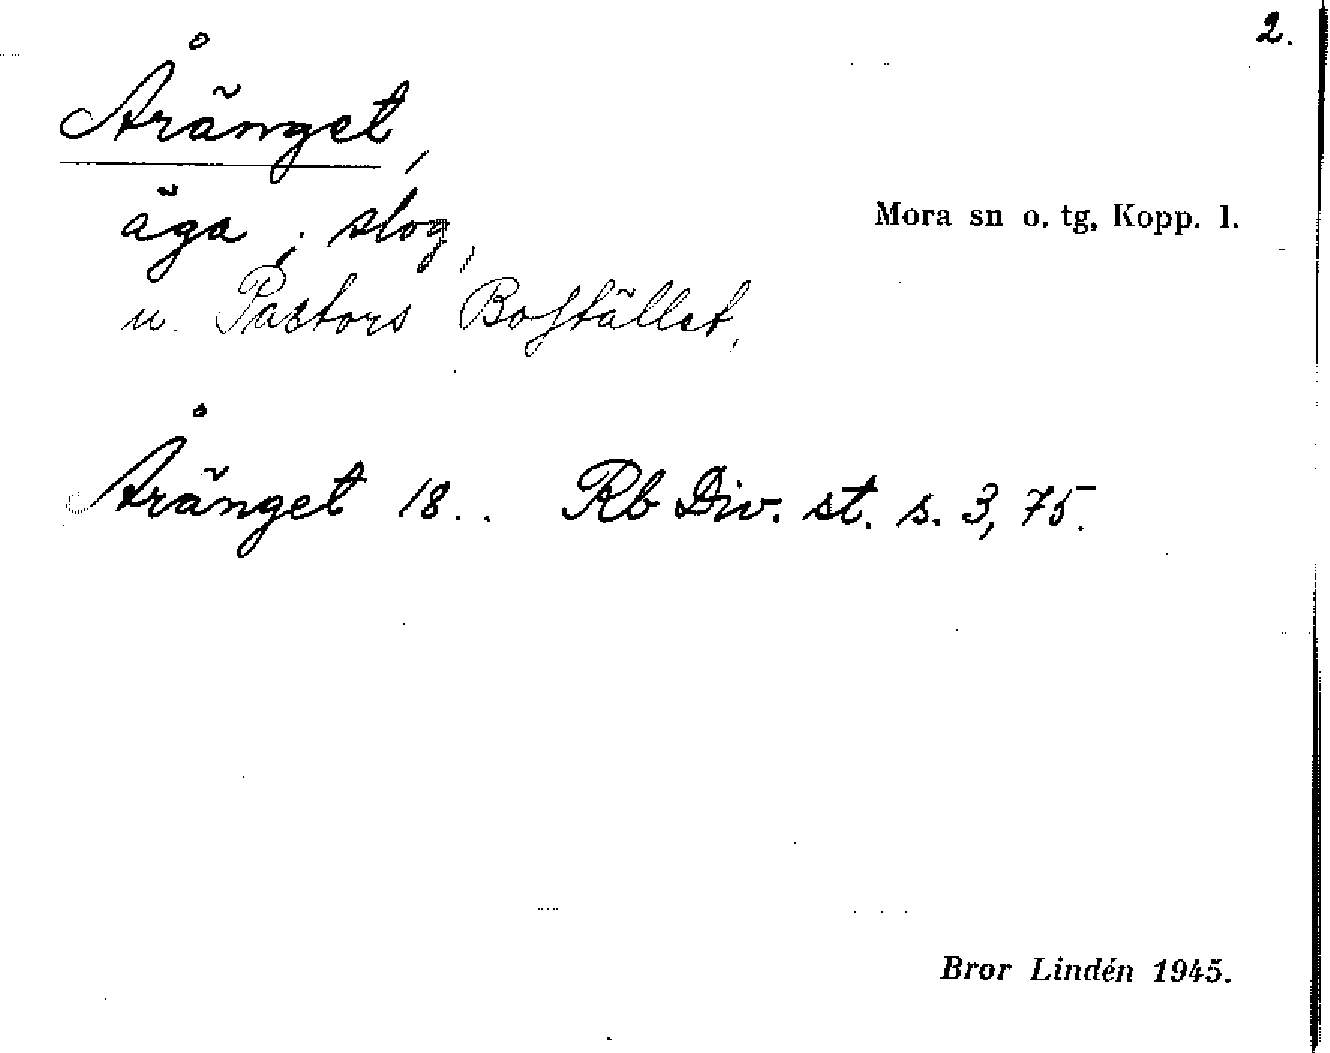 2.
Åränget,
äga; slog,
Mora sn o. tg, Kopp. l.
u. Pastors Bostället,
Åränget 18.. Rb Div. st. s. 3, 75.
Bror Lindén 1945.